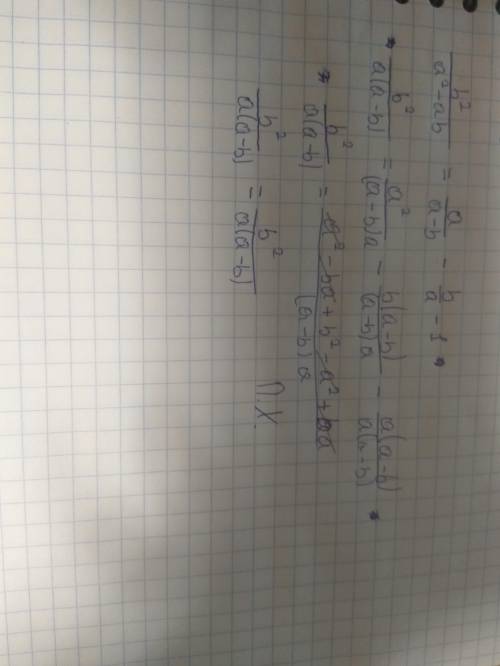 b²/(a²-ab) = a/(a-b) - b/a - 1
b²/(a(a-b)) = a²/((a-b)a) - b(a-b)/((a-b)a) - a(a-b)/(a(a-b))
b²/(a(a-b)) = (a² - ba + b² - a² + ba)/((a-b)a)
b²/(a(a-b)) = b²/(a(a-b))